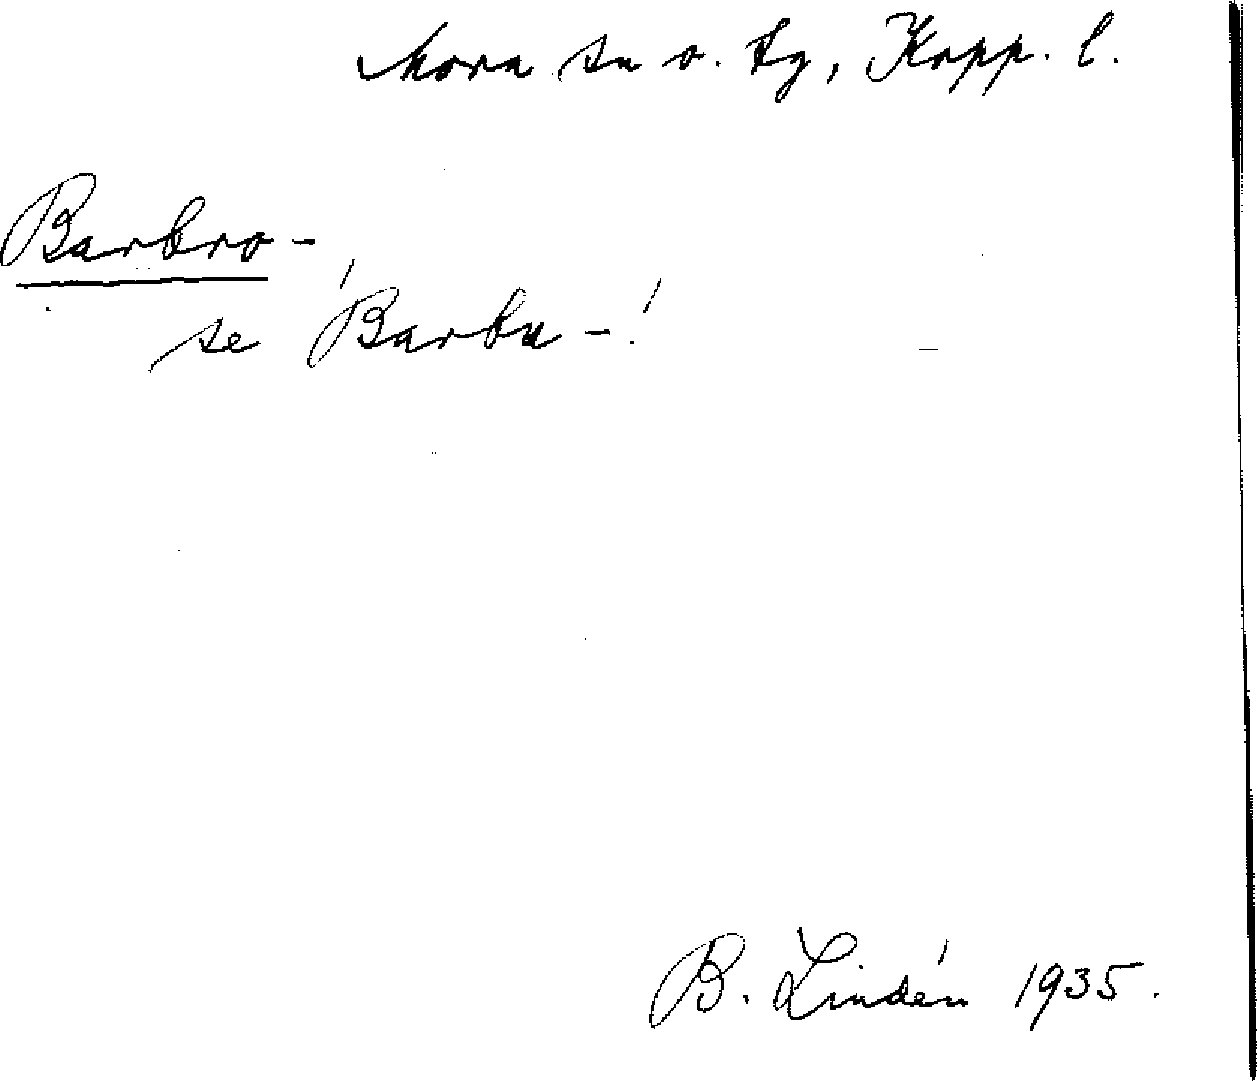 Mora sn o. tg, Kopp. l.
Barbro-
se 'Barbu-'!
B. Lindén 1935.